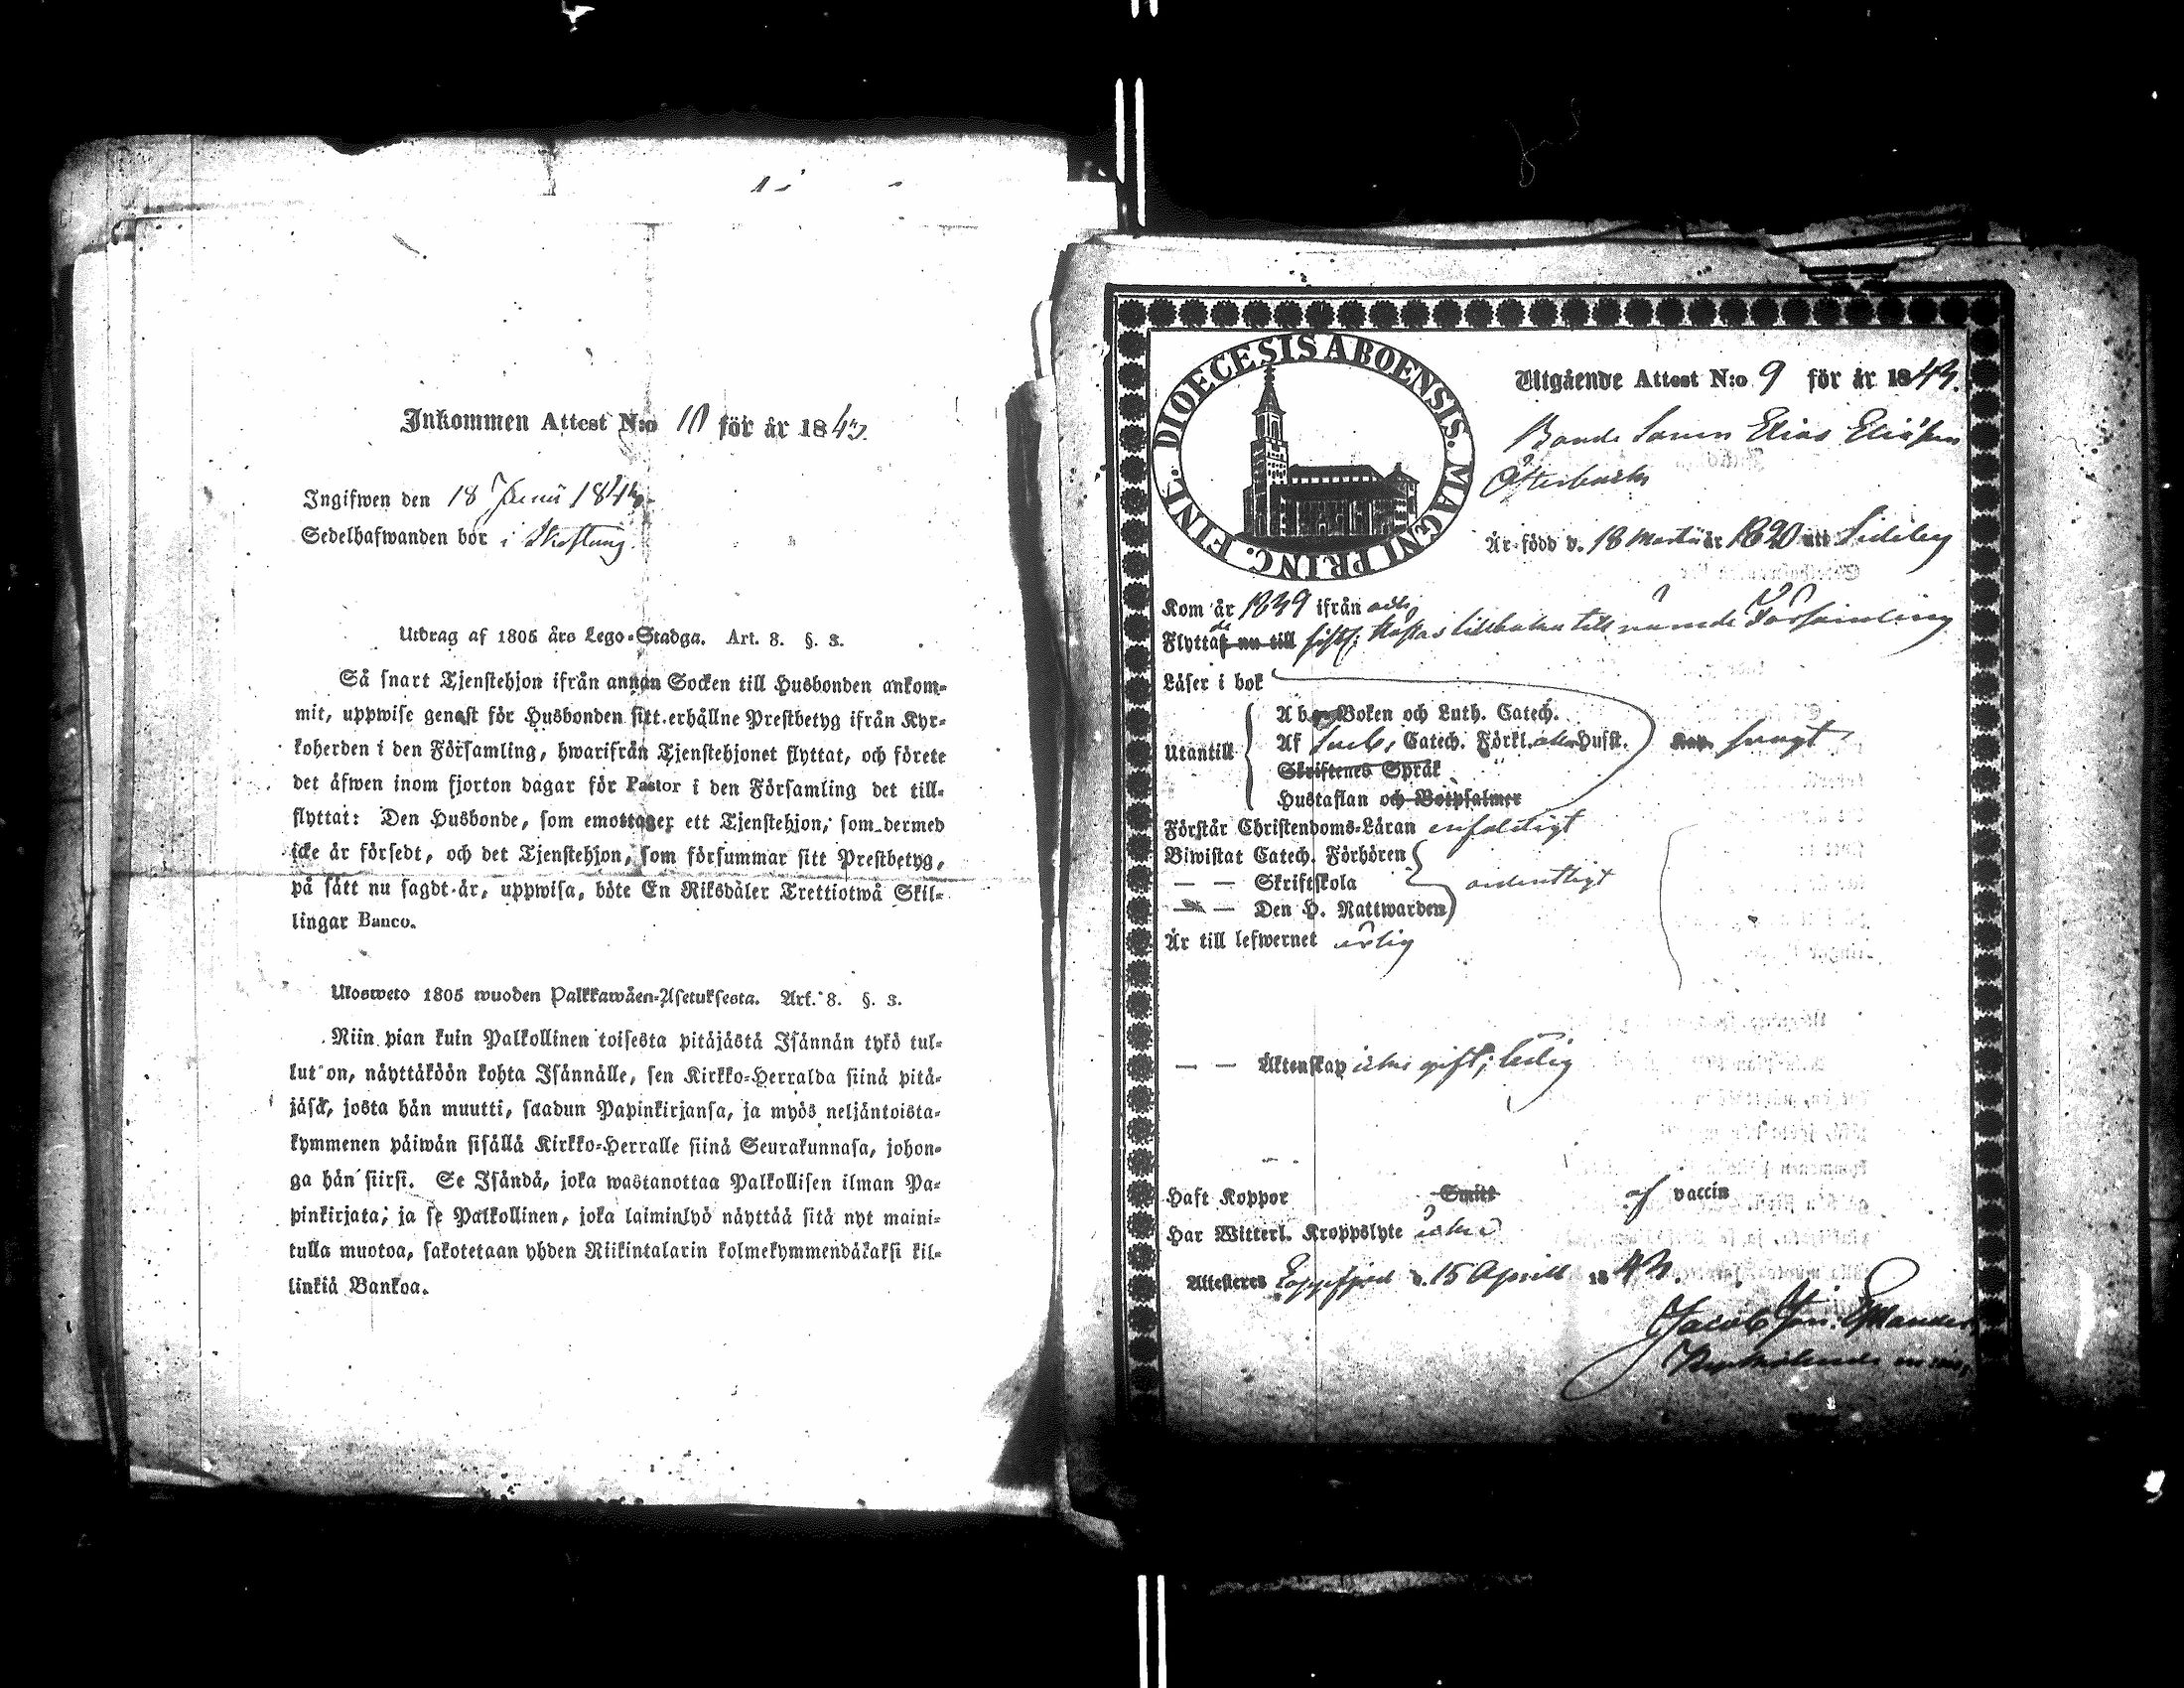 Inkommen Attest N:o 10 för år 1843.
Ingifwen den 18 Junii 1843.
Sedelhafwanden bor i Skaftung.
Utdrag af 1805 års Lego-Stadga. Art. 8. §. 3.
Så snart Tjenstehjon ifrån annan Socken till Husbonden ankom-
mit, uppwise genast för Husbonden sitt erhållne Prestbetyg ifrån Kyr-
koherden i den Församling, hwarifrån Tjenstehjonet flyttat, och förete
det äfwen inom fjorton dagar för Pastor i den Församling det till-
flyttat: Den Husbonde, som emottager ett Tjenstehjon, som dermed
icke är försedt, och det Tjenstehjon, som försummar sitt Prestbetyg,
på sätt nu sagdt är, uppwisa, böte En Riksdaler Trettiotwå Skil-
lingar Banco.
Ulosweto 1805 wuoden Palkkawäen-Asetuksesta. Art. 8. §. 3.
Niin pian kuin Palkollinen toisesta pitäjästä Isännän tykö tul-
lut on, näyttäköön kohta Isännälle, sen Kirkko-Herralda siinä pitä-
jäsä, josta hän muutti, saadun Papinkirjansa, ja myös neljäntoista-
kymmenen päiwän sisällä Kirkko-Herralle siinä Seurakunnasa, johon-
ga hän siirsi. Se Isändä, joka wastanottaa Palkollisen ilman Pa-
pinkirjata; ja se Palkollinen, joka laiminlyö näyttää sitä nyt maini-
tulla muotoa, sakotetaan yhden Riikintalarin kolmekymmendäkaksi kil-
linkiä Bankoa.
DIOECESIS ABOENSIS. MAGNI PRINC. FINL.
Utgående Attest N:o 9 för år 1843.
Bonde Sonen Elias Eliasson
Österback
Är född d. 18 Martii år 1820 att Sideby
Kom år 1839 ifrån
Flyttat nu till tillbaka till nämde Församling
Läser i bok
Utantill
Ab Boken och Luth. Catech.
Af Catech. Förkl. Husst.
Skriftenes Språk
Hustaflan och Botpsalmer
swagt
Förstår Christendoms-Läran enfaldigt
Biwistat Catech. Förhören
— — Skriftskola
ordentligt
— — Den H. Nattwarden
Är till lefwernet ärlig
— — Äktenskap icke gift; ledig
Haft Koppor Smitt af vaccin
Har Witterl. Kroppslyte icke
Attesteres d. 15 Aprill 1843.
Jacob